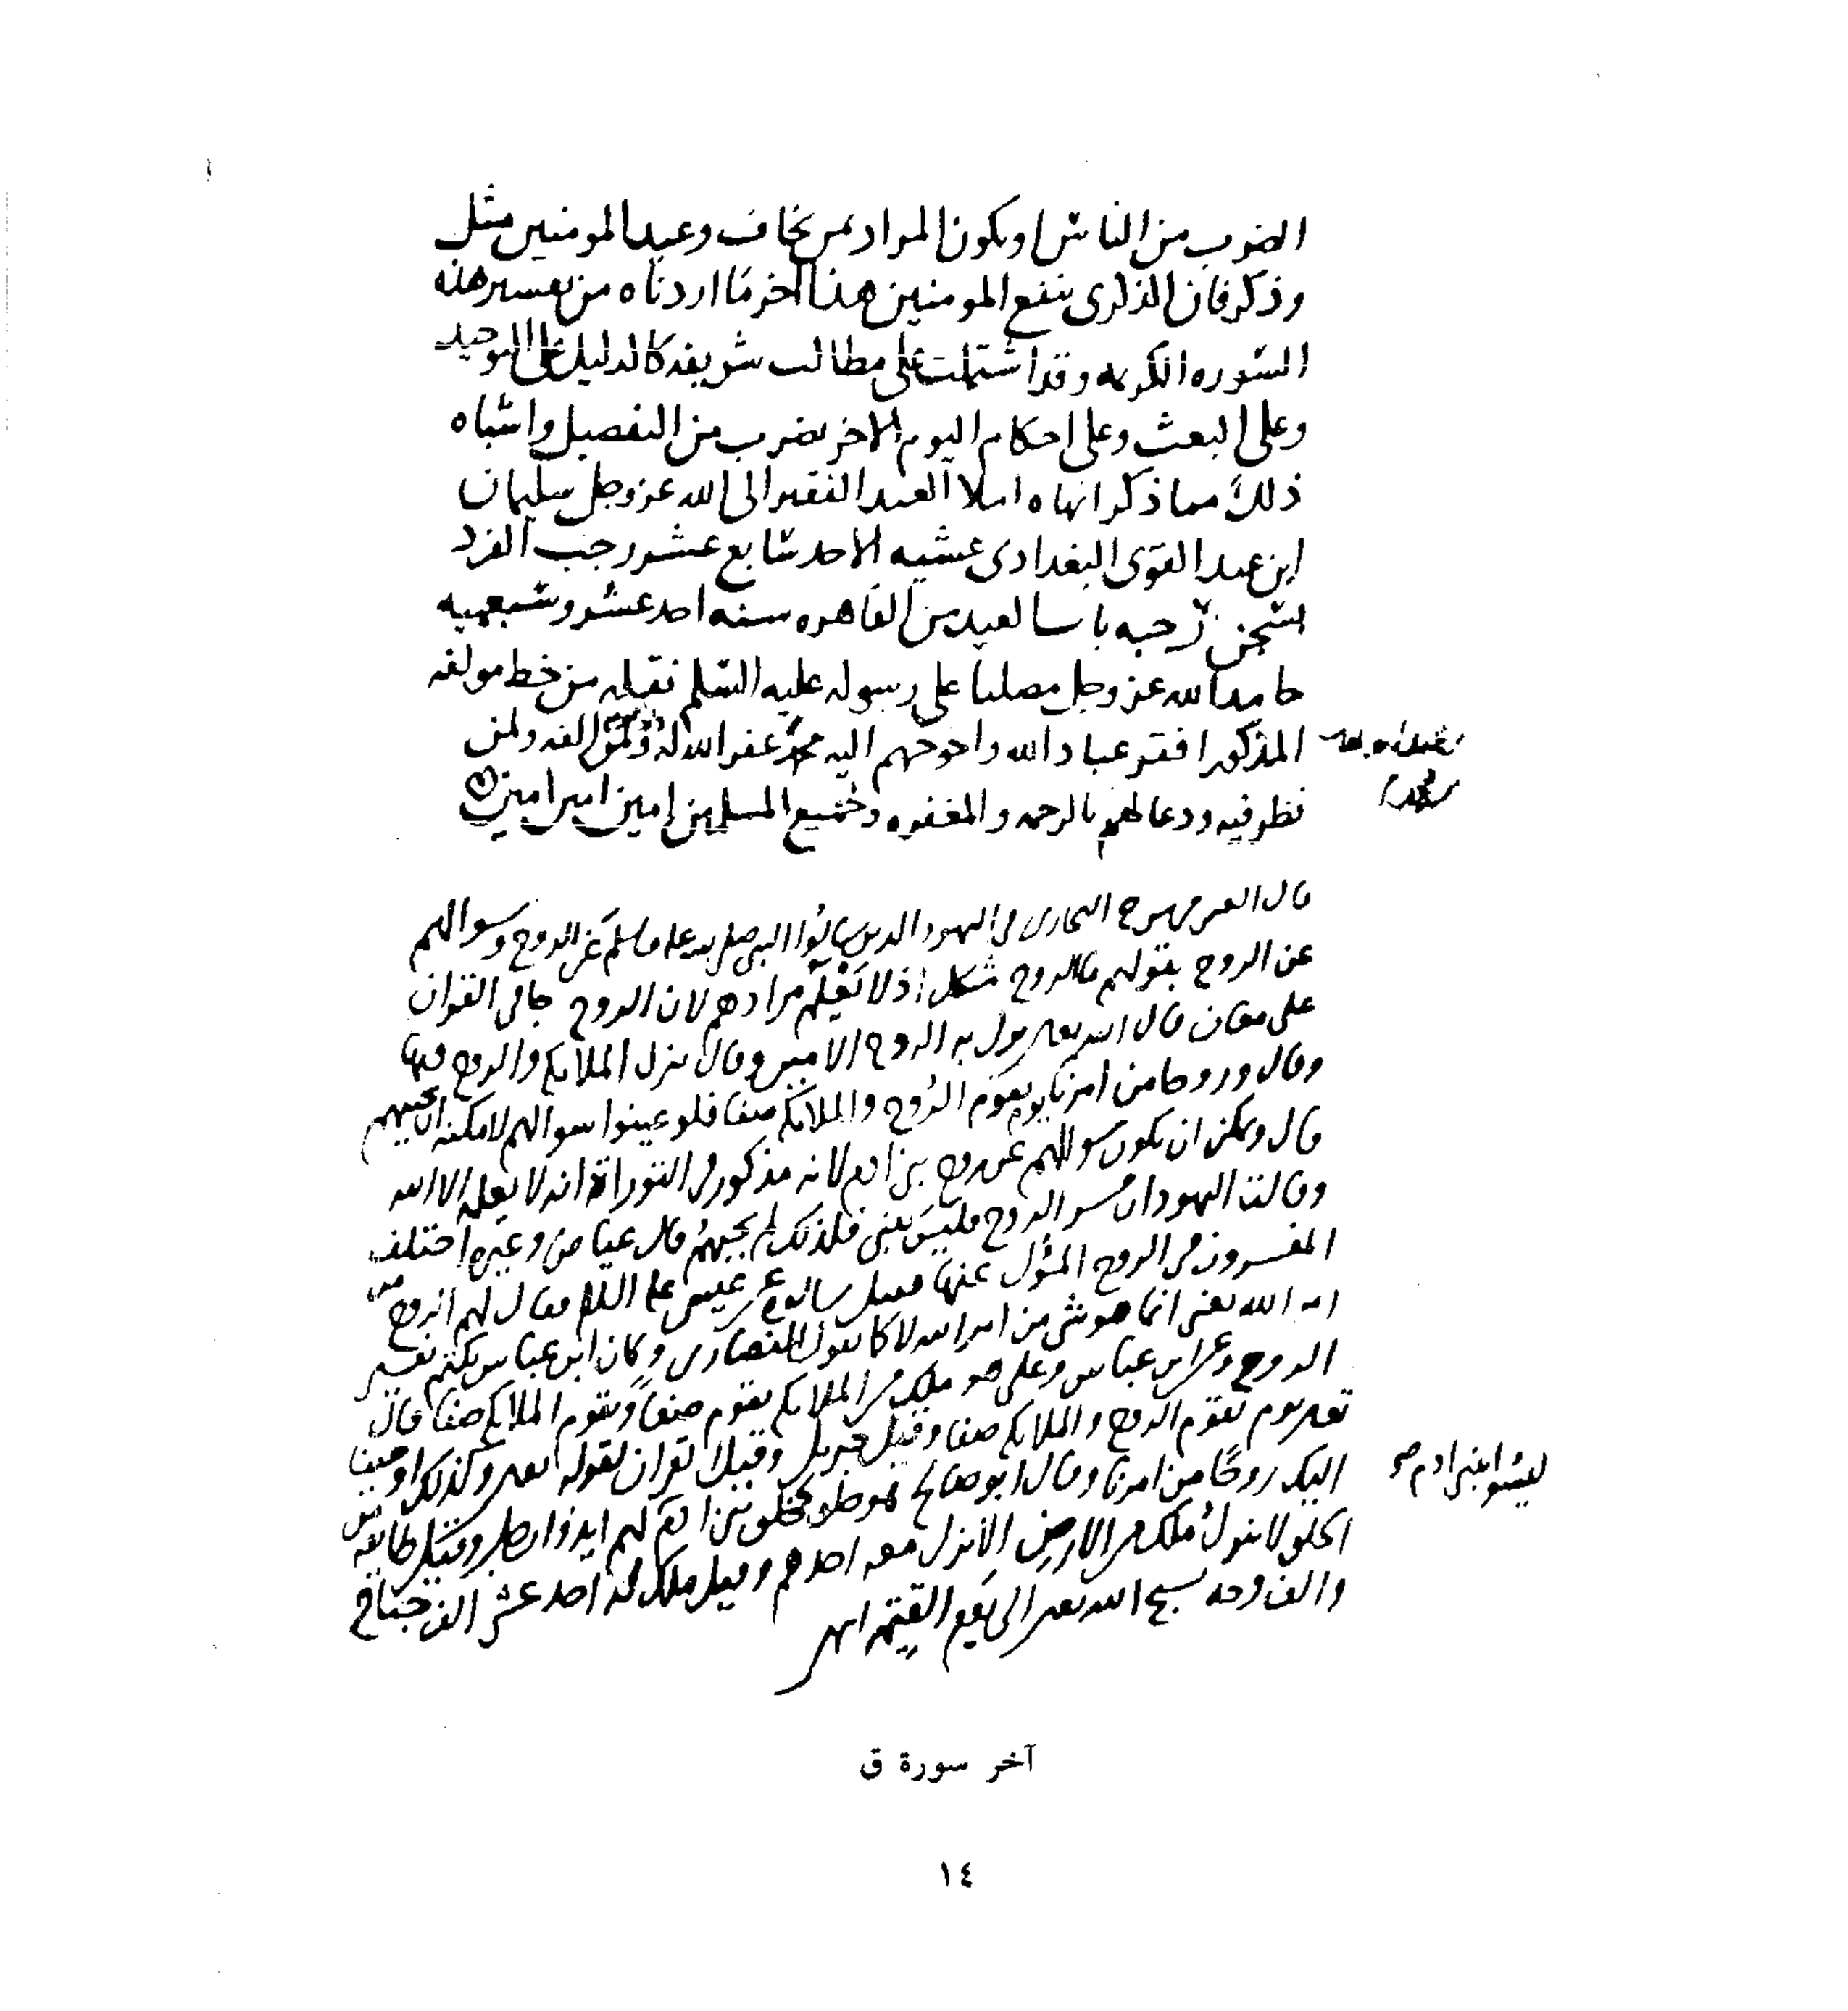 الضرب من الناس او يكون المراد بمن يخاف وعيد المومنين مثل
وذكر فان الذكرى تنفع المومنين هذا آخر ما اردناه من تفسير هذه
السوره الكريمه وقد اشتملت على مطالب شريفه كالدليل على التوحيد
وعلى البعث وعلى احكام اليوم الاخر بضرب من التفصيل واشباه
ذلك مما ذكر انهاه املا العبد الفقير الى الله عز وجل سليمان
ابن عبد القوى البغدادى عشيه الاحد سابع عشر رجب الفرد
بسجن رحبه باب العيد من القاهره سنه احد عشر وسبعميه
حامدا لله عز وجل مصليا على رسوله عليه السلم نقله من خط مولفه
المذكور افقر عباد الله واحوجهم اليه محمد غفر الله له ولمن الفه ولمن
نظر فيه ودعا لهم بالرحمه والمغفره ولجميع المسلمين امين امين امين
قال في شرح البخارى في اليهود الذين سالوا النبي صلى الله عليه وسلم عن الروح وسوالهم
عن الروح بقولهم ما الروح مشكل اذ لا نعلم مرادهم لان الروح جا في القران
على معان قال الله تعالى نزل به الروح الامين وقال تنزل الملايكه والروح فيها
وقال وروحا من امرنا يوم يقوم الروح والملايكه صفا فلو عينوا سوالهم لامكنه ان يجيبهم
قال ويمكن ان يكون سوالهم عن روح بني ادم لانه مذكور في التوراة انه لا يعلمه الا الله
وقالت اليهود ان فسر الروح فليس بنبي فلذلك لم يجبهم قال عياض وغيره اختلف
المفسرون في الروح المسؤل عنها فقيل سالوه عن عيسى عليه السلام فقال لهم الروح من
امر الله يعنى انما هو شى من امر الله لا كما يقول النصارى وكان ابن عباس يكتم تفسير
الروح وعن ابن عباس وعلى هو ملك من الملايكه يقوم صفا وتقوم الملايكه صفا قال
تعالى يوم يقوم الروح والملايكه صفا وقيل جبريل وقيل القران لقوله تعالى وكذلك اوحينا
اليك روحا من امرنا وقال ابو صالح هو خلق كخلق بنى ادم لهم ايد وارجل وقيل طايفه من
الخلق لا ينزل ملك من الارض الا نزل معه احدهم وقيل ملك له احد عشر الف جناح
والف وجه يسبح الله تعالى الى يوم القيمه انتهى
ليسوا ببنى ادم صح
آخر سورة ق
١٤